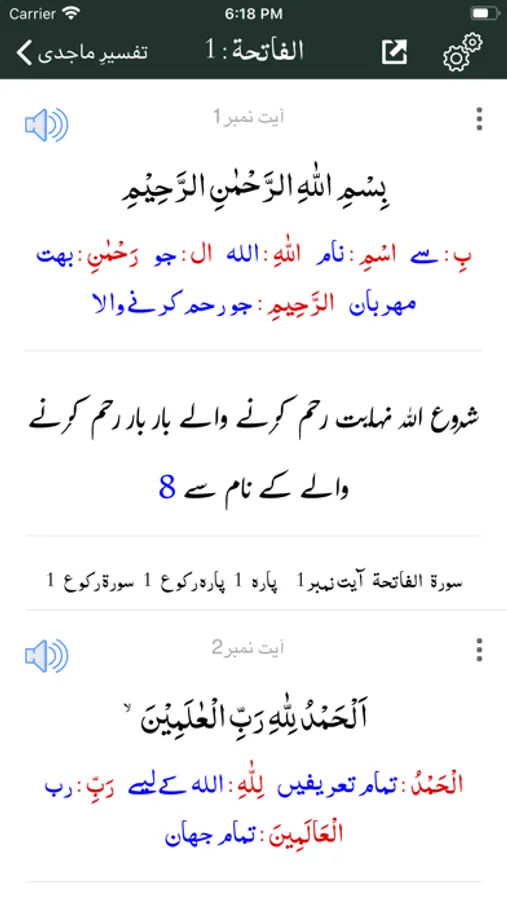 Carrier 6:18 PM
تفسیرِ ماجدی الفاتحة : 1
آیت نمبر1
بِسْمِ اللهِ الرَّحْمٰنِ الرَّحِيْمِ
بِ : سے اسْمِ : نام اللهِ : الله ال : جو رَحْمٰنِ : بهت
مهربان الرَّحِيمِ : جو رحم كرنے والا
شروع اللہ نہایت رحم کرنے والے بار بار رحم کرنے
والے کے نام سے 8
سورة الفاتحة آیت نمبر1 پارہ 1 پارہ رکوع 1 سورۃ رکوع 1
آیت نمبر2
اَلْحَمْدُ لِلّٰهِ رَبِّ الْعٰلَمِيْنَ ۙ
الْحَمْدُ : تمام تعریفیں لِلّٰهِ : الله کے لیے رَبِّ : رب
الْعَالَمِينَ : تمام جهان